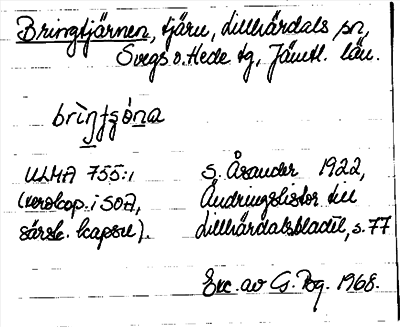 Bringtjärnen, tjärn, Lillhärdals sn,
Svegs o. Hede tg, Jämtl. län.
brìŋtʂòna
ULMA 755:1
(xerokop. i SOA,
särsk. kapsel).
S. Åsander 1922,
Ändringslistor till
Lillhärdalsbladet, s. 77
Exc. av G. Pg. 1968.